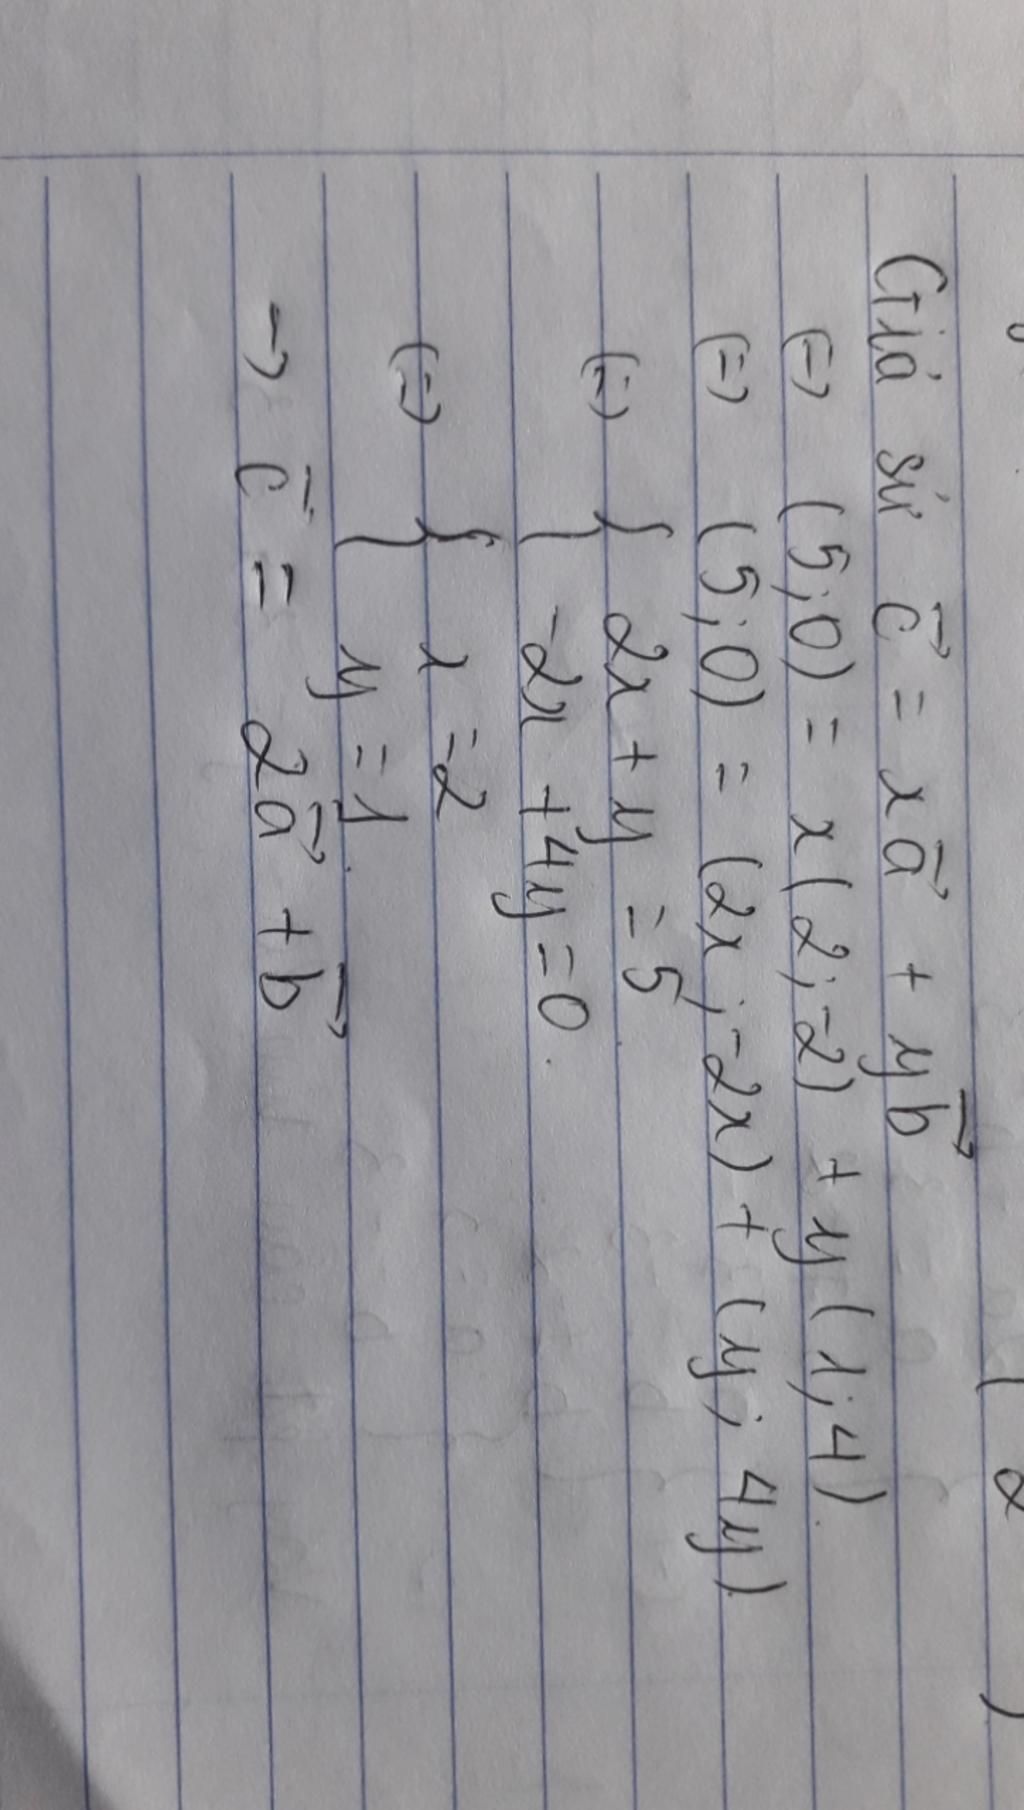 Giả sử c⃗ = xa⃗ + yb⃗
(=) (5;0) = x(2;-2) + y(1;4).
(=) (5;0) = (2x;-2x) + (y; 4y)
(=) { 2x + y = 5
-2x + 4y = 0.
(=) { x = 2
y = 1.
→ c⃗ = 2a⃗ + b⃗